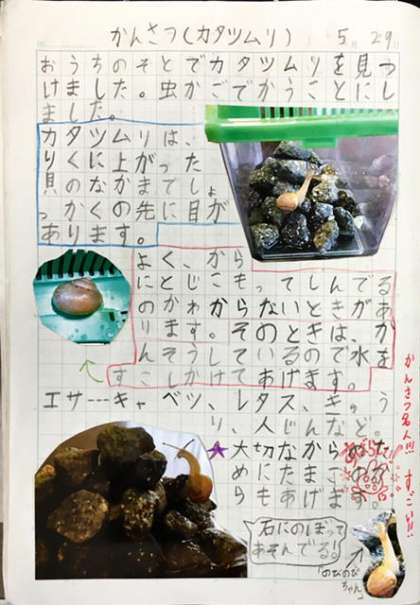 かんさつ(カタツムリ) 5月29
おうちのそとでカタツムリを見つ
けました。虫かごでかうことにし
ました。
カタツムリは、
りくに上がった
貝のなかまでしょ
っかくの先に目が
あります。
よく、から
にとじこもってしんでる
のかわからないときがあ
ります。そのときは、か
んそうしているので水を
すこしかけてあげます。
エサ---キャベツ、レタス、きゅう
り、人じんなど。
★大切なからのた
めにたまごのか
らもあげます。
石にのぼって
あそんでる!。
「のびのび
ちゃん」
かんさつ名人!!! すごい!!